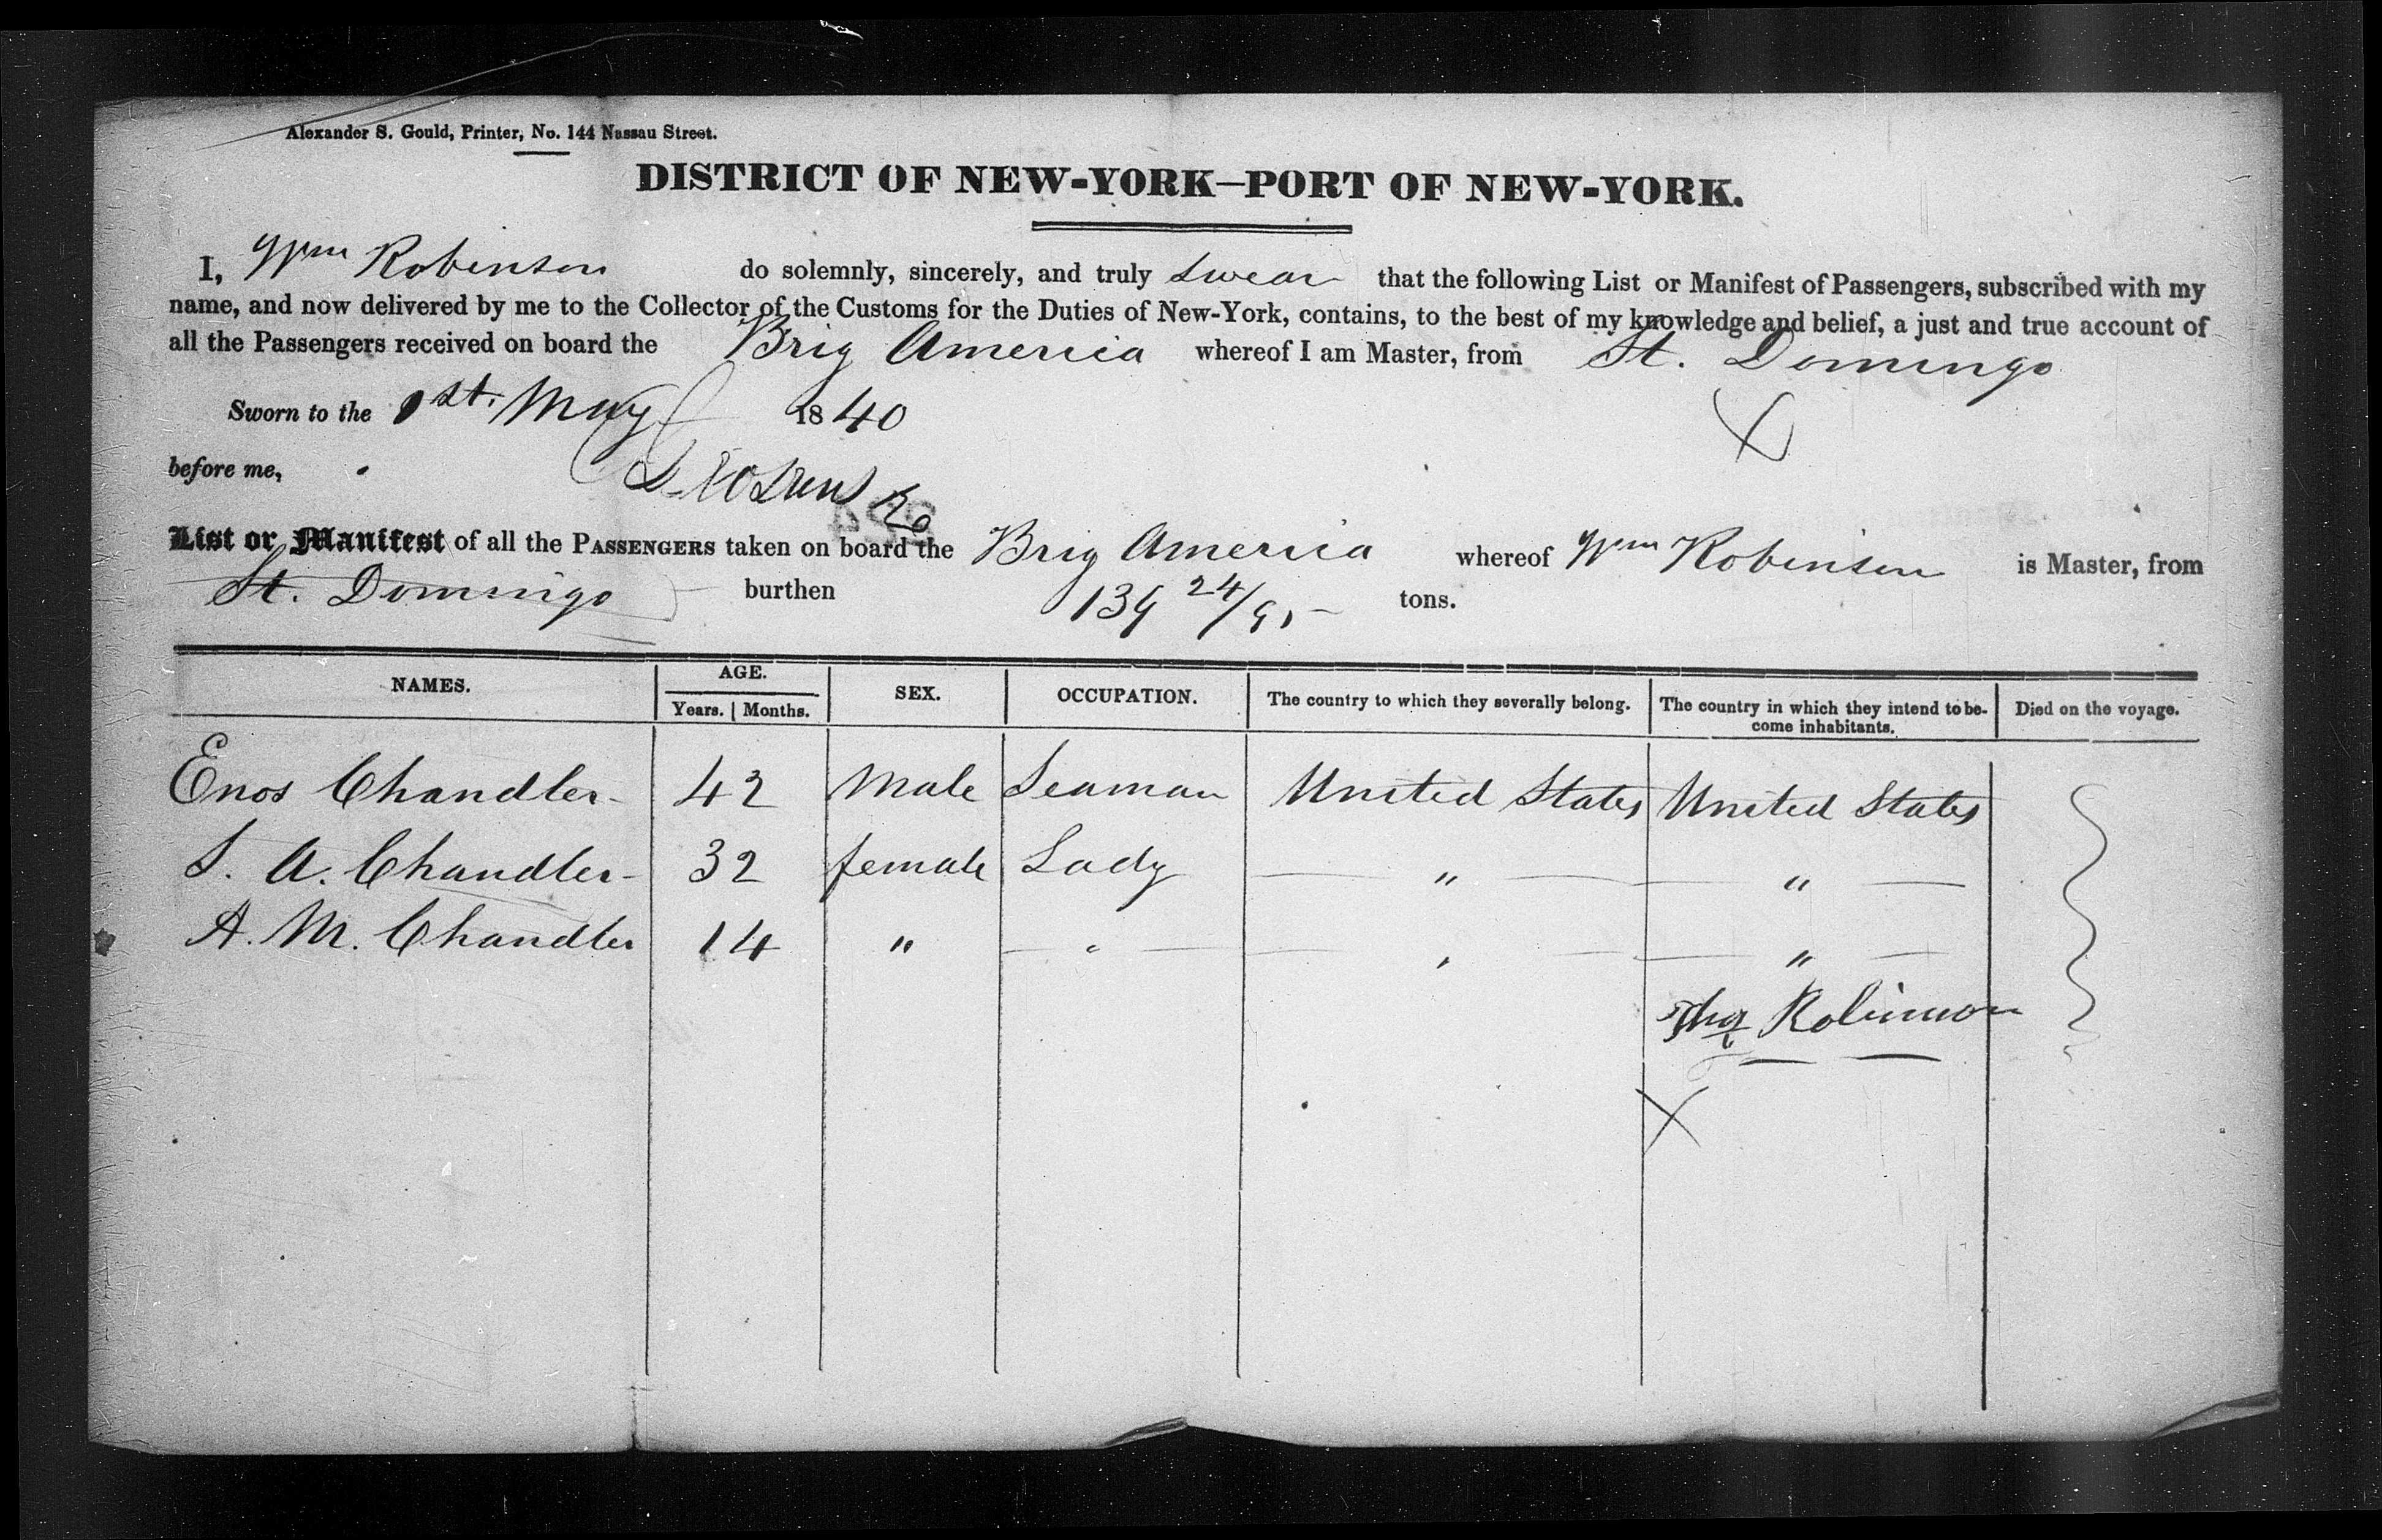 Alexander S. Gould, Printer, No. 144 Nassau Street.
DISTRICT OF NEW-YORK—PORT OF NEW-YORK.
I, Wm Robinson do solemnly, sincerely, and truly swear that the following List or Manifest of Passengers, subscribed with my
name, and now delivered by me to the Collector of the Customs for the Duties of New-York, contains, to the best of my knowledge and belief, a just and true account of
all the Passengers received on board the Brig America whereof I am Master, from St. Domingo
Sworn to the 1st. May 1840
before me,
List or Manifest of all the PASSENGERS taken on board the Brig America whereof Wm Robinson is Master, from
St. Domingo burthen 139 24/95 tons.
NAMES. AGE. Years. Months. SEX. OCCUPATION. The country to which they severally belong. The country in which they intend to become inhabitants. Died on the voyage.
Enos Chandler 42 Male Seaman United States United States
S. A. Chandler 32 female Lady " "
A. M. Chandler 14 " " " "
Robinson